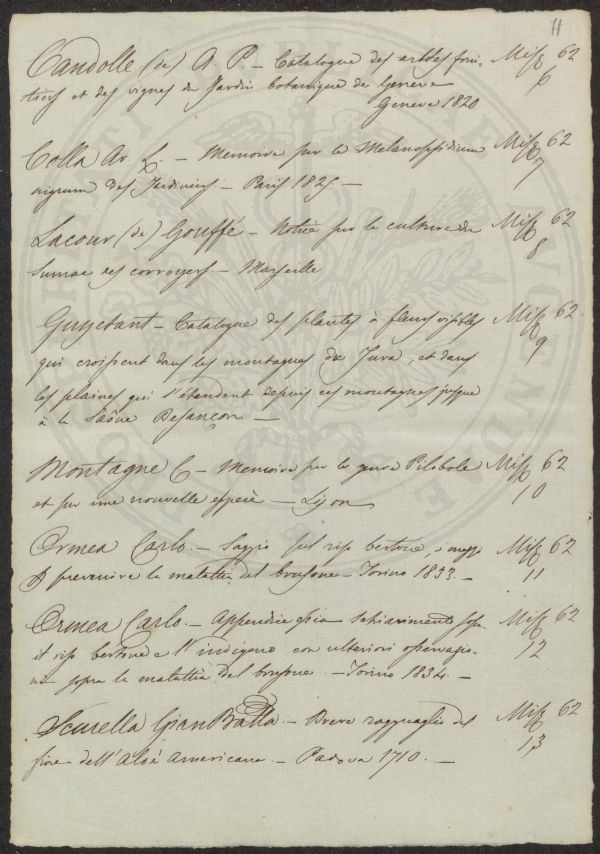 11
Candolle (de) A. P. – Catalogue des arbres frui- Misc 62
tiers et des vignes du Jardin botanique de Geneve 6
Geneve 1820
Colla Av. L. – Memoire sur le Melanopsidium Misc 62
nigrum des Jardiniers. – Paris 1825. – 7
Lacour (de) Gouffé – Notice sur la culture du Misc 62
Sumac des corroyers – Marseille 8
Guyetant – Catalogue des plantes à fleurs visibles Misc 62
qui croissent dans les montagnes du Jura, et dans 9
les plaines qui s'etendent depuis ces montagnes jusque
à la Saône Besançon –
Montagne C – Memoire sur le genre Pilobole Misc 62
et sur une nouvelle espèce – Lyon 10
Ormea Carlo. – Saggio sul riso bertone, e mezzi Misc 62
p prevenire la malattia del brusone – Torino 1833. – 11
Ormea Carlo. – Appendice ossia schiarimento sopr. Misc 62
il riso bertone e l'indigeno con ulteriori osservazio- 12
ni sopra la malattia del brusone. – Torino 1834. –
Scurella GianBatta. – Breve ragguaglio del Misc 62
fiore dell'Aloè Americana. – Padova 1710. – 13